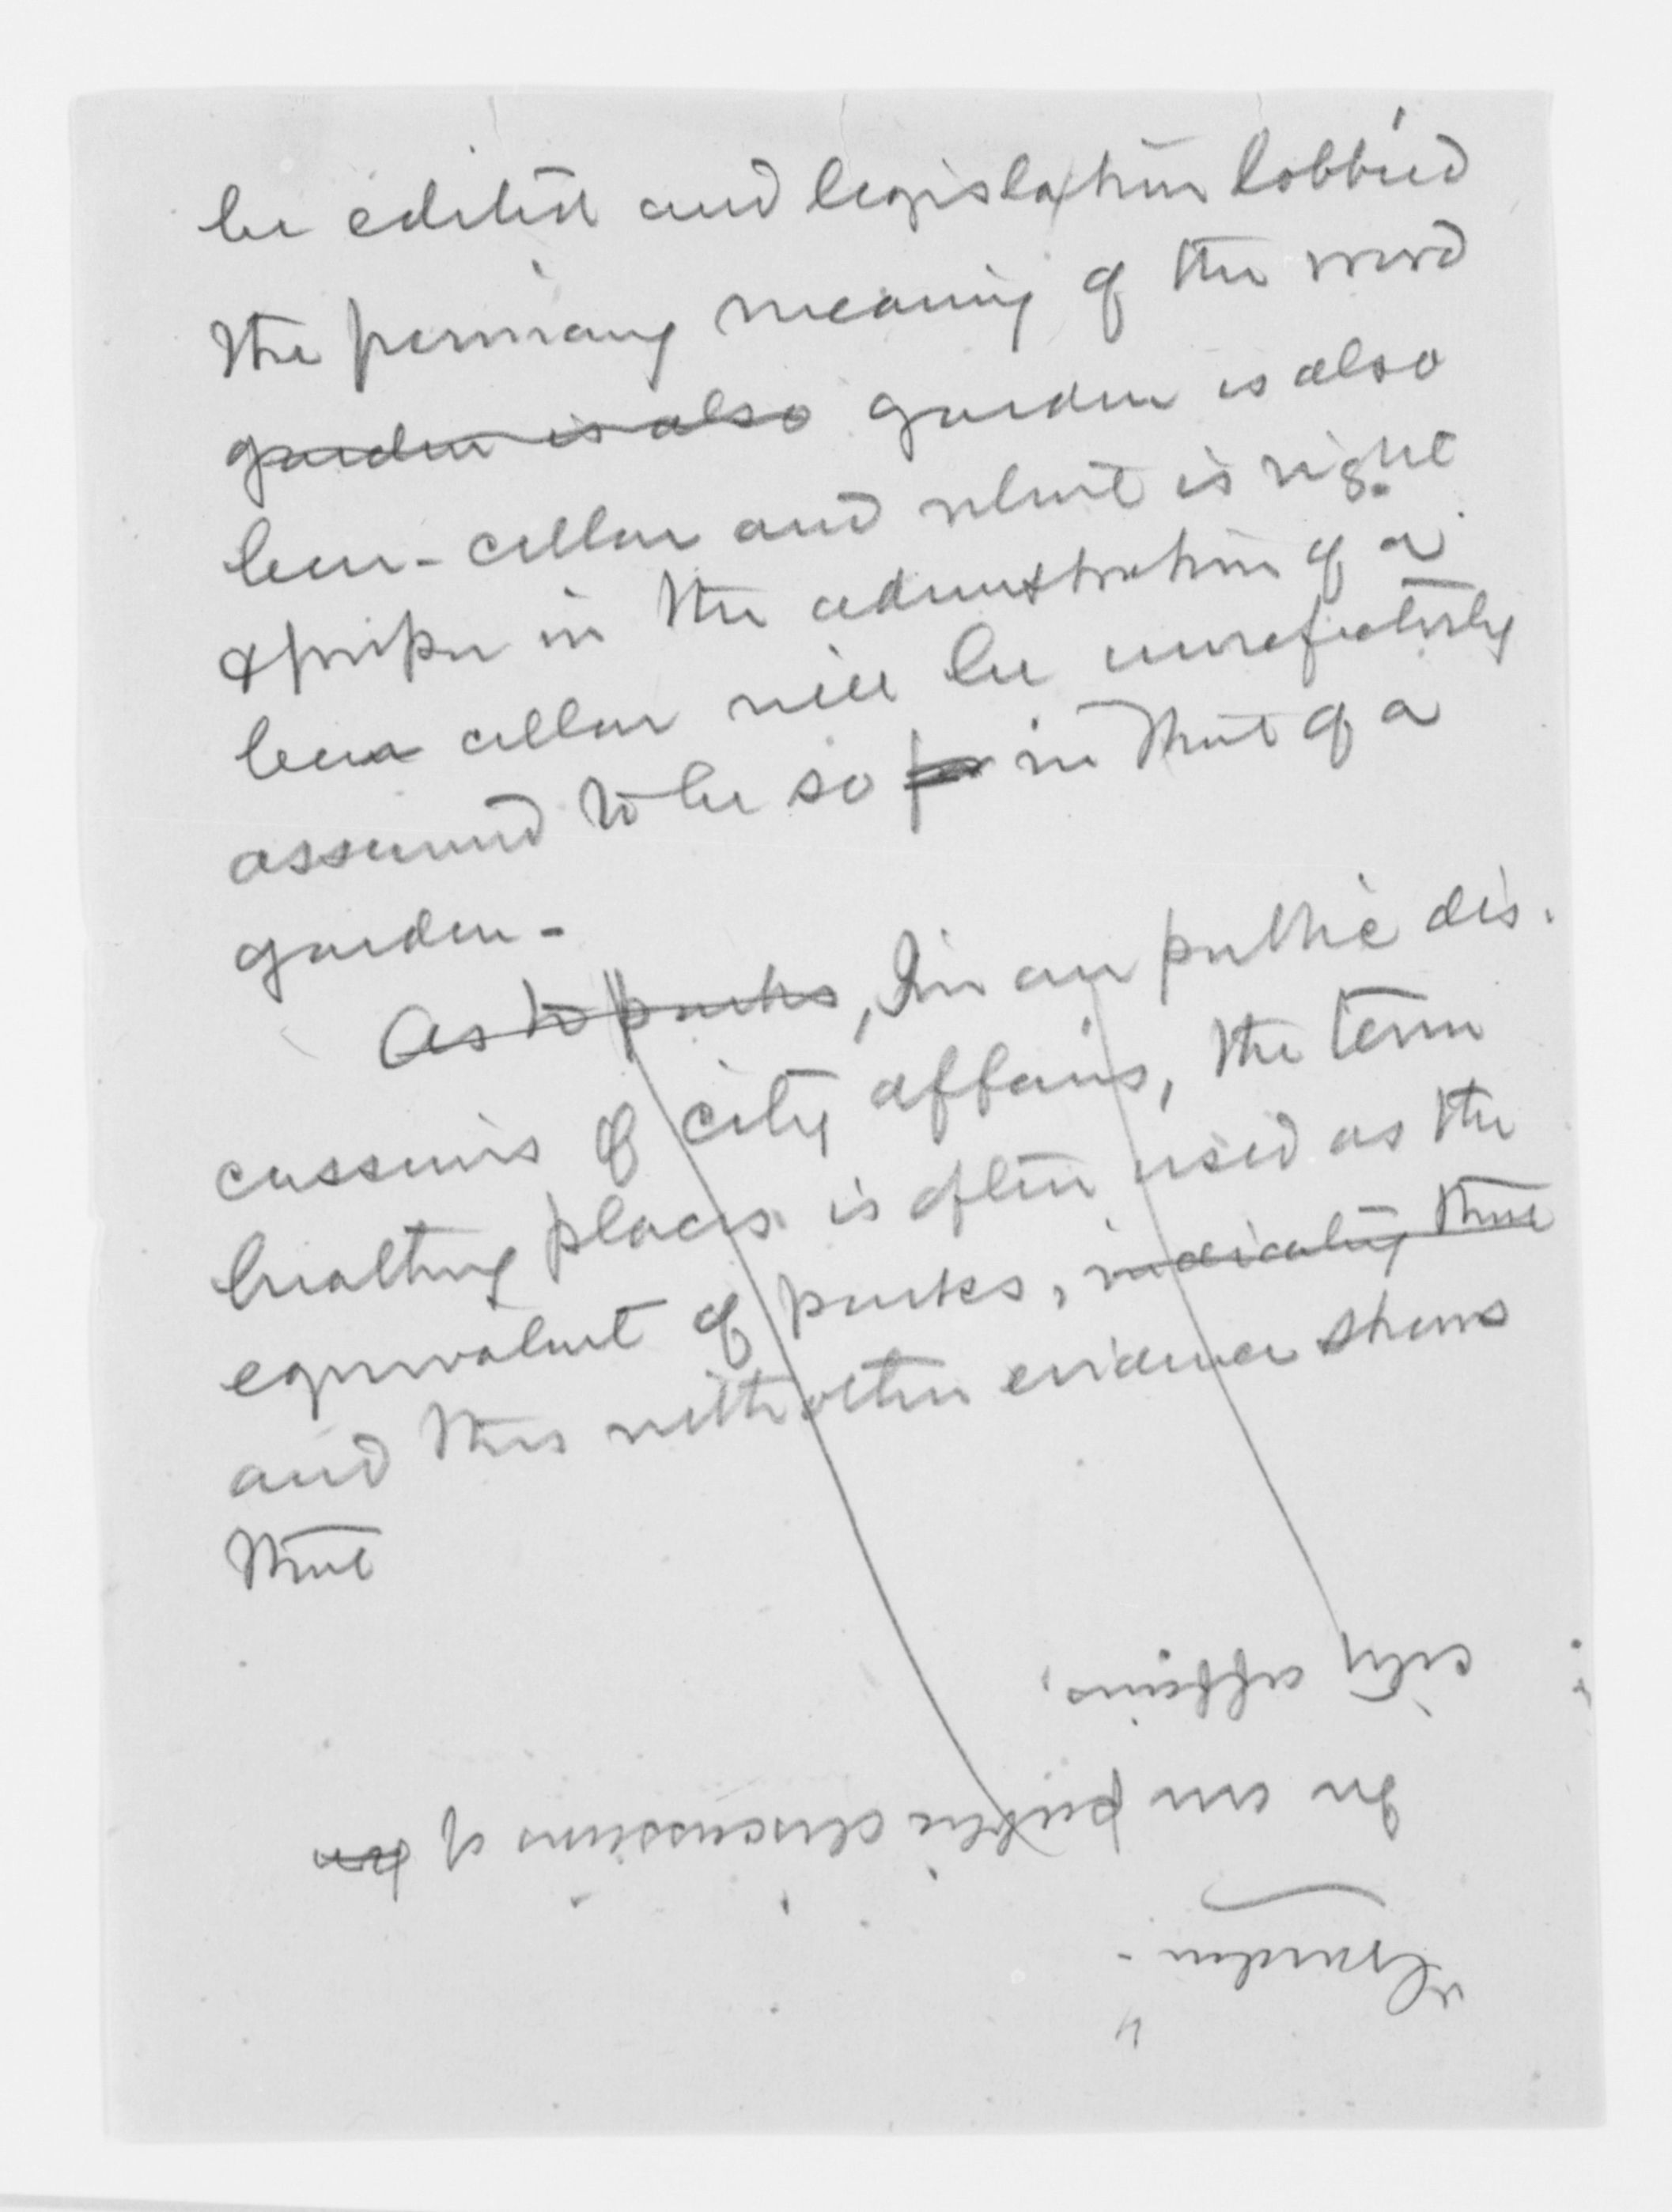 be edited and legislation lobbied
the primary meaning of the word
garden is also garden is also
beer-cellar and what is right
& proper in the adminstration of a
beer cellar will be unrefutably
assumed to be so for in that of a
garden -
As to parks, In our public dis-
cussions of city affairs, the term
breathing places is often used as the
equivalent of parks, indicating that
and this with other evidence shows
that
city affairs,
In our public discussions of
"Garden."